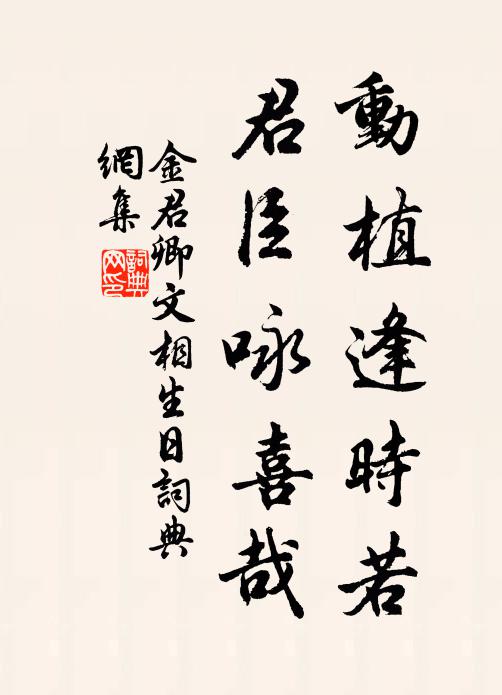 動植逢時若
君臣咏喜哉
金君卿文相生日詞典
網集
詞典
网印